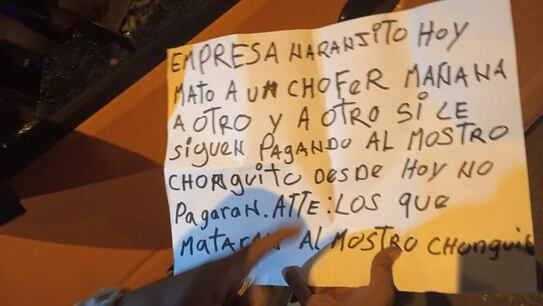 EMPRESA NARANJITO HOY
MATO A UN CHOFER MAÑANA
A OTRO Y A OTRO SI LE
SiGUEN PAGANDO AL MOSTRO
CHONGUITO DESDE HOY NO
PAGARAN. ATTE: LOS QUE
MATARAN AL MOSTRO CHONGUI